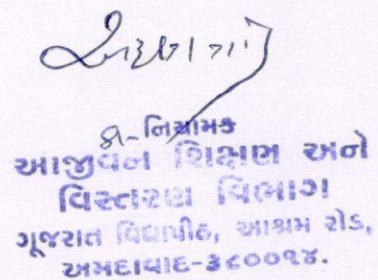 નિયામક
આજીવન શિક્ષણ અને
વિસ્તરણ વિભાગ
ગૂજરાત વિદ્યાપીઠ, આશ્રમ રોડ,
અમદાવાદ-૩૮૦૦૧૪.